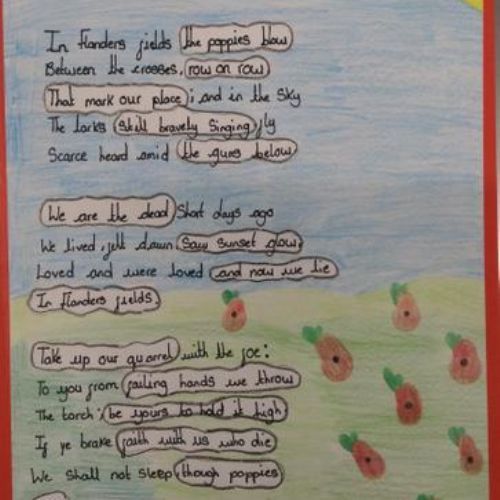 In Flanders fields the poppies blow
Between the crosses, row on row
That mark our place; and in the Sky
The larks still bravely Singing, fly
Scarce heard amid the guns below
We are the dead Short days ago
We lived, felt dawn, Saw sunset glow,
Loved and were loved and now we lie
In Flanders fields.
Take up our quarrel with the foe:
To you from failing hands we throw
The torch; be yours to hold it high
If ye brake faith with us who die
We Shall not sleep, though poppies